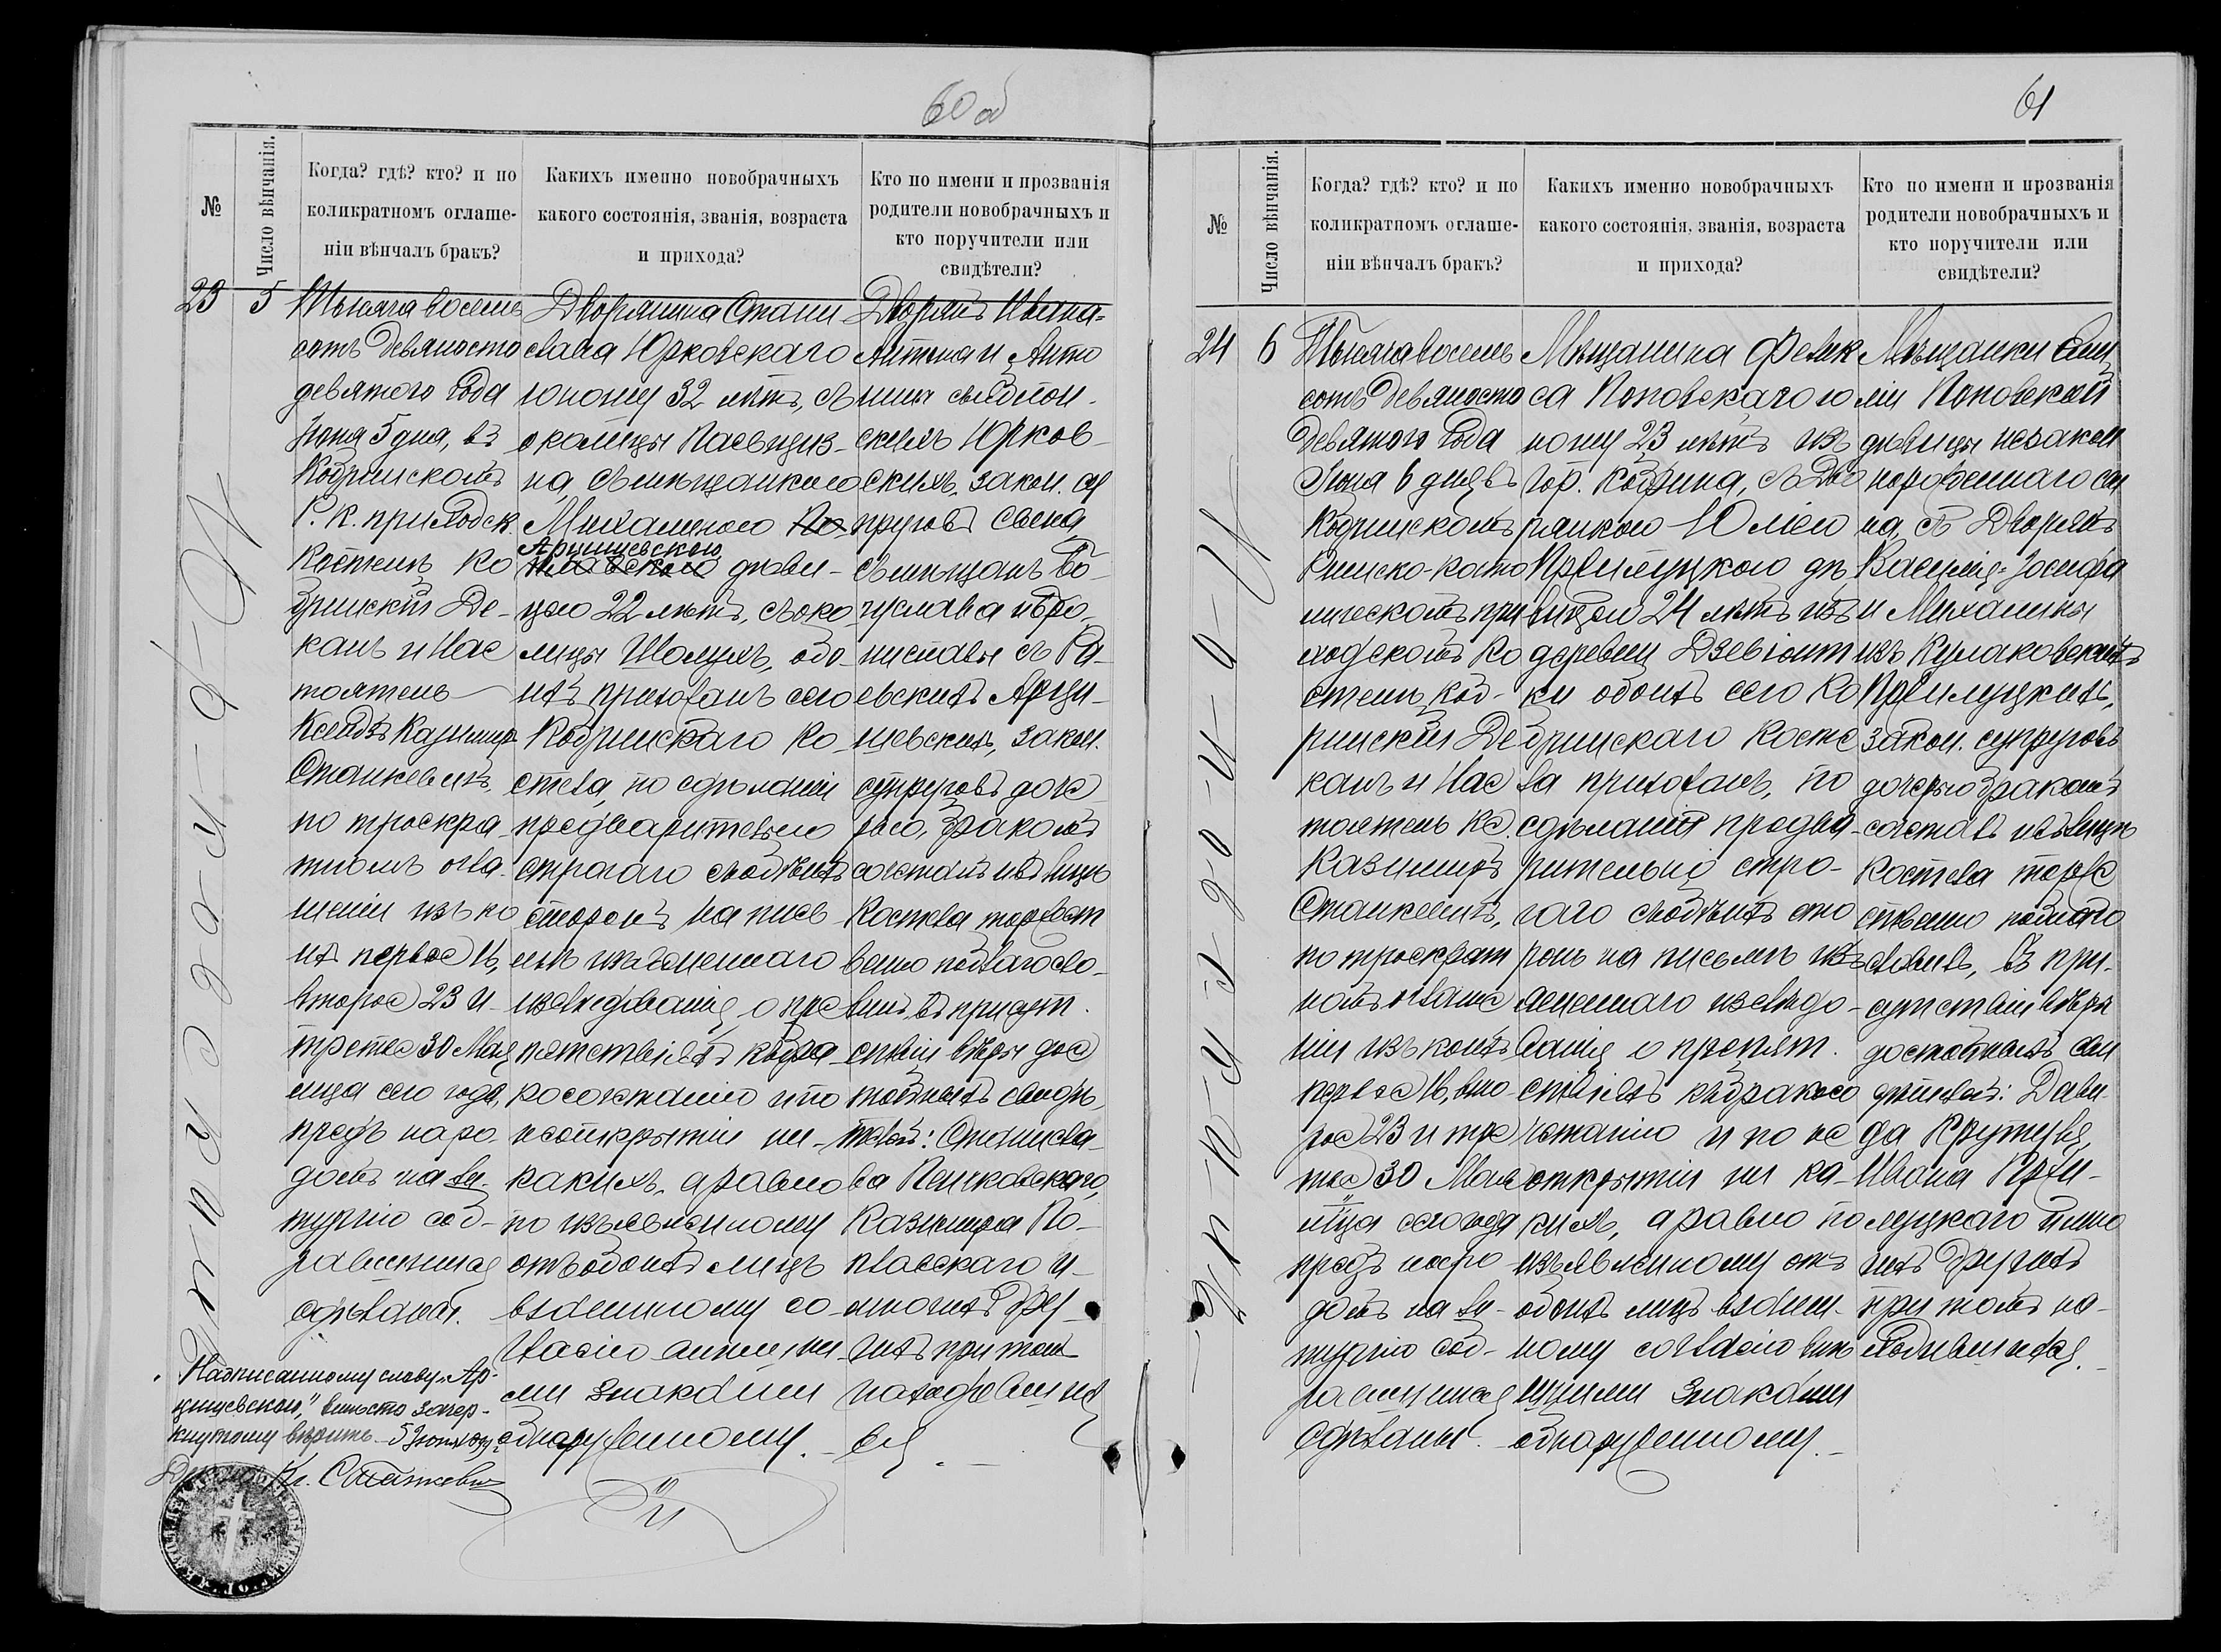 60 об
№
Число вѣнчанія.
Когда? гдѣ? кто? и по
коликратномъ оглаше-
ніи вѣнчалъ бракъ?
Какихъ именно новобрачныхъ
какого состоянія, званія, возраста
и прихода?
Кто по имени и прозванія
родители новобрачныхъ и
кто поручители или
свидѣтели?
23
5
Тысяча восемь
сотъ девяносто
девятого года
Іюня 5 дня, въ
Кобринскомъ
Р. К. приходск.
костелѣ Ко
бринскій Де-
канъ и Нас
тоятель
Ксендзъ Казимиръ
Станкевичъ,
по троекра
тномъ огла-
шеніи изъ ко
ихъ первое 16,
второе 23 и
третье 30 Мая
мца сего года,
предъ наро-
домъ на ли-
тургію соб-
равшимся
сдѣланы.
Дворянина Стани
слава Юрковскаго
юношу 32 лѣтъ, съ
околицы
на, съ мѣщанкою
Михалиною По
Арцишевскою
плавскою дѣви-
цею 22 лѣтъ, съ око
лицы Шолухъ, обо-
ихъ прихожанъ сего
Кобринскаго Ко-
стела, по сдѣланіи
предварительно
строгаго съ обѣихъ
сторонъ на пись
мѣ изъясненнаго
изслѣдованія, о пре
пятствіяхъ къ бра
косочетанію и по
неоткрытіи ни-
какихъ, а равно
по изъявленному
отъ обоихъ лицъ
взаимному со-
гласію внѣшни-
ми знаками
обнаруженному.
Дворянъ Ивана-
Антона и Анто
нины съ
скихъ Юрков-
скихъ, закон. су
пруговъ сына,
съ мѣщанъ Бо-
гуслава и Бро-
ниславы съ Ра-
евскихъ Арци-
шевскихъ, закон.
супруговъ доче-
рью, бракомъ
сочеталъ и въ лицѣ
Костела торжест
венно поблагосло-
вилъ, въ присут-
ствіи вѣры дос
тойныхъ свидѣ
телей: Станисла
ва Пенчковскаго,
Казимира По-
плавскаго и
многихъ дру-
гихъ при томъ
находившихъ
ся.
Надписанному слову "Ар-
цишевскою," вмѣсто зачер-
кнутому вѣрить. 5 Іюня 1899 г.
Деканъ Кс. Станкевичъ
61
№
Число вѣнчанія.
Когда? гдѣ? кто? и по
коликратномъ оглаше-
ніи вѣнчалъ бракъ?
Какихъ именно новобрачныхъ
какого состоянія, званія, возраста
и прихода?
Кто по имени и прозванія
родители новобрачныхъ и
кто поручители или
свидѣтели?
24
6
Тысяча восемь
сотъ девяносто
девятого года
Іюня 6 дня, въ
Кобринскомъ
Римско-като
лическомъ при
ходскомъ Ко
стелѣ, Коб-
ринскій Де
канъ и Нас
тоятель Кс.
Казимиръ
Станкевичъ,
по троекрат
номъ оглаше
ніи изъ коихъ
первое 16, вто
рое 23 и тре
тье 30 Мая
мца сего года
предъ наро
домъ на ли-
тургію соб-
равшимся
сдѣланы.
Мѣщанина Фелик
са Поповскаго ю
ношу 23 лѣтъ изъ
гор. Кобрина, съ Дво
рянкою Юліею
Пржилуцкою дѣ
вицею 24 лѣтъ изъ
деревни Дзевіонт
ки обоихъ сего Ко
бринскаго Косте
ла прихожанъ, по
сдѣланіи предва
рительно стро-
гаго съ обѣихъ сто
ронъ на письмѣ изъ
ясненнаго изслѣдо-
ванія о препят-
ствіяхъ къ бракосо
четанію и по не
открытіи ни ка-
кихъ, а равно по
изъявленному отъ
обоихъ лицъ взаим-
ному согласію внѣ
шними знаками
обнаруженному.
Мѣщанки Эми
ліи Поповской
дѣвицы незакон
норожденнаго сы
на, съ Дворянъ
Василія-Іосифа
и Михалины
изъ Кулаковскихъ
Пржилуцкихъ,
закон. супруговъ
дочерью бракомъ
сочеталъ и въ лицѣ
Костела торже
ственно поблаго
словилъ, въ при-
сутствіи вѣры
достойныхъ сви
дѣтелей: Дави-
да Крутуля,
Ивана Пржи-
луцкаго и мно
гихъ другихъ
при томъ на-
ходившихся.